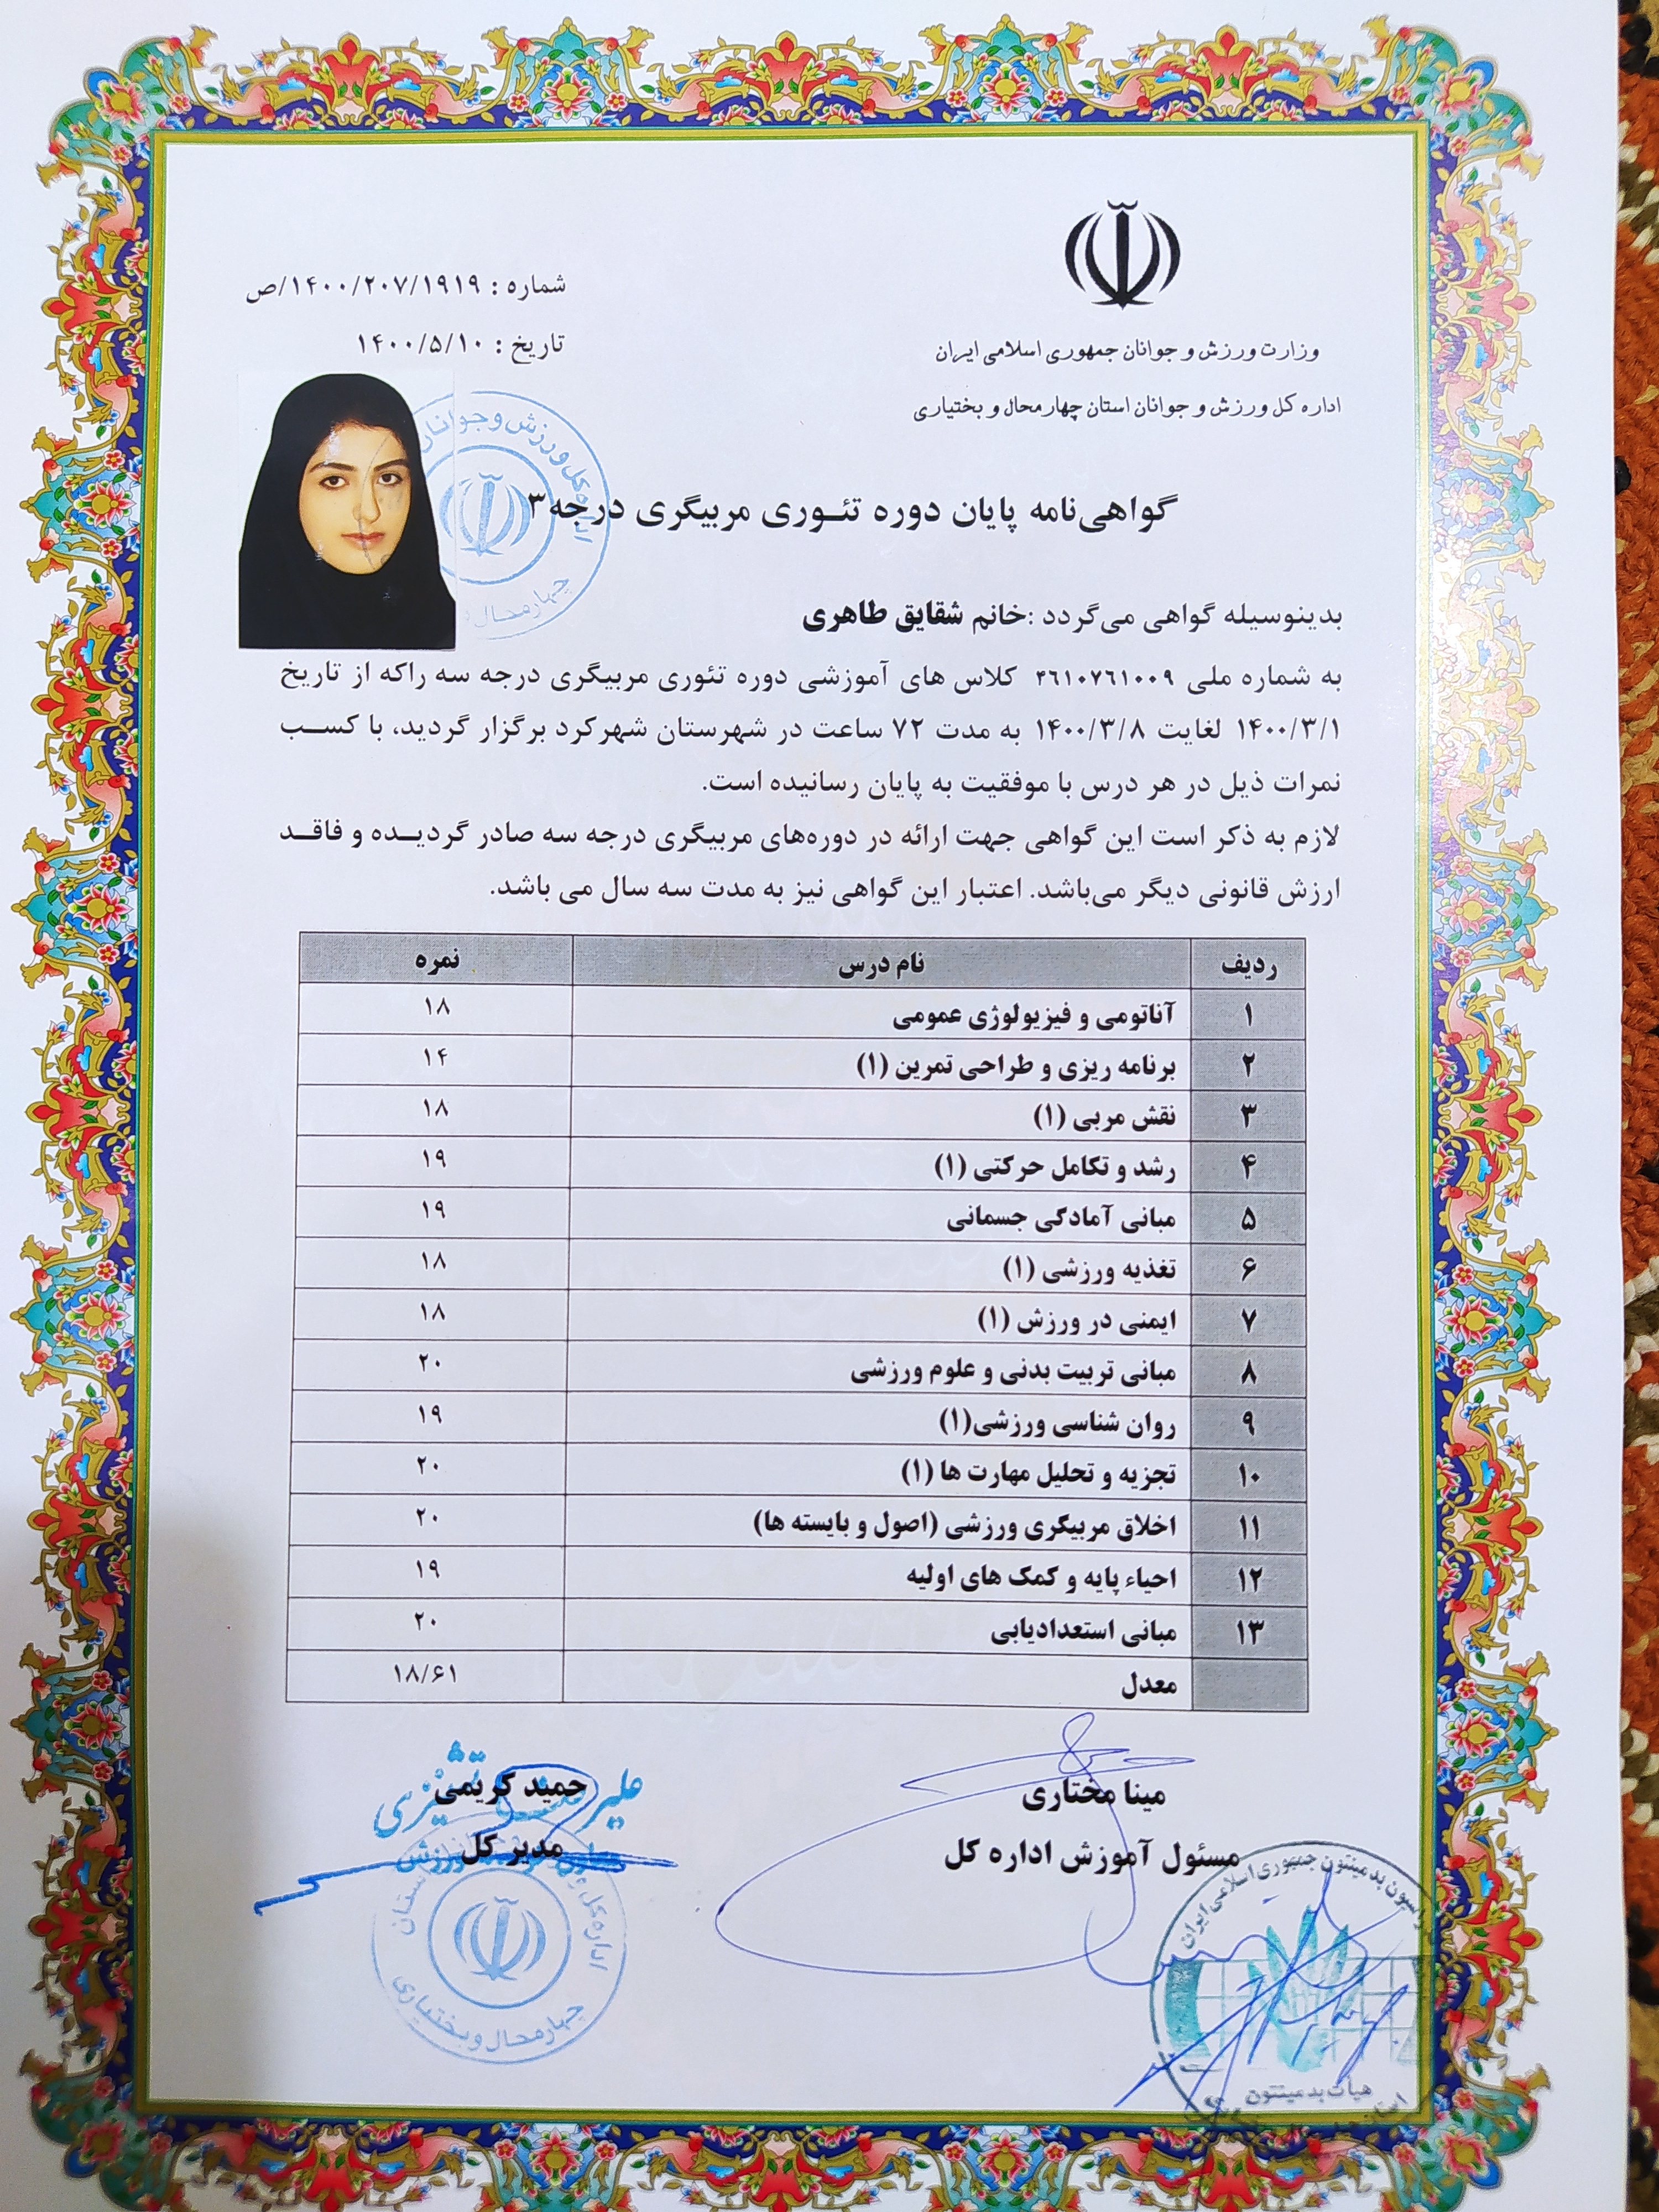 وزارت ورزش و جوانان جمهوری اسلامی ایران
اداره کل ورزش و جوانان استان چهارمحال و بختیاری
شماره : ۱۴۰۰/۲۰۷/۱۹۱۹/ص
تاریخ : ۱۴۰۰/۵/۱۰
اداره کل ورزش و جوانان
چهارمحال و
گواهی‌نامه پایان دوره تئوری مربیگری درجه۳
بدینوسیله گواهی می‌گردد :خانم شقایق طاهری
به شماره ملی ۴۶۱۰۷۶۱۰۰۹ کلاس های آموزشی دوره تئوری مربیگری درجه سه راکه از تاریخ
۱۴۰۰/۳/۱ لغایت ۱۴۰۰/۳/۸ به مدت ۷۲ ساعت در شهرستان شهرکرد برگزار گردید، با کسب
نمرات ذیل در هر درس با موفقیت به پایان رسانیده است.
لازم به ذکر است این گواهی جهت ارائه در دوره‌های مربیگری درجه سه صادر گردیده و فاقد
ارزش قانونی دیگر می‌باشد. اعتبار این گواهی نیز به مدت سه سال می باشد.
ردیف نام درس نمره
۱ آناتومی و فیزیولوژی عمومی ۱۸
۲ برنامه ریزی و طراحی تمرین (۱) ۱۴
۳ نقش مربی (۱) ۱۸
۴ رشد و تکامل حرکتی (۱) ۱۹
۵ مبانی آمادگی جسمانی ۱۹
۶ تغذیه ورزشی (۱) ۱۸
۷ ایمنی در ورزش (۱) ۱۸
۸ مبانی تربیت بدنی و علوم ورزشی ۲۰
۹ روان شناسی ورزشی(۱) ۱۹
۱۰ تجزیه و تحلیل مهارت ها (۱) ۲۰
۱۱ اخلاق مربیگری ورزشی (اصول و بایسته ها) ۲۰
۱۲ احیاء پایه و کمک های اولیه ۱۹
۱۳ مبانی استعدادیابی ۲۰
معدل ۱۸/۶۱
مینا مختاری
مسئول آموزش اداره کل
حمید کریمی
مدیر کل
ورزش
اداره کل
استان
چهارمحال و بختیاری
بدمینتون جمهوری اسلامی ایران
هیأت بدمینتون